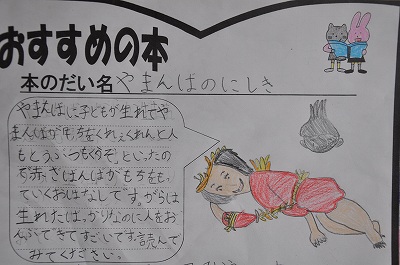 おすすめの本
本のだい名 やまんばのにしき
やまんばは、子どもが生れてや
まんばがもちをくれぇくれんと人
もとうぶつもくうぞ。といったの
で赤ざばんばがもちをも
ていくおはなしです。がらは
生れたば、かりなのに人をお
んぶできてすごいです。読んで
みてください。